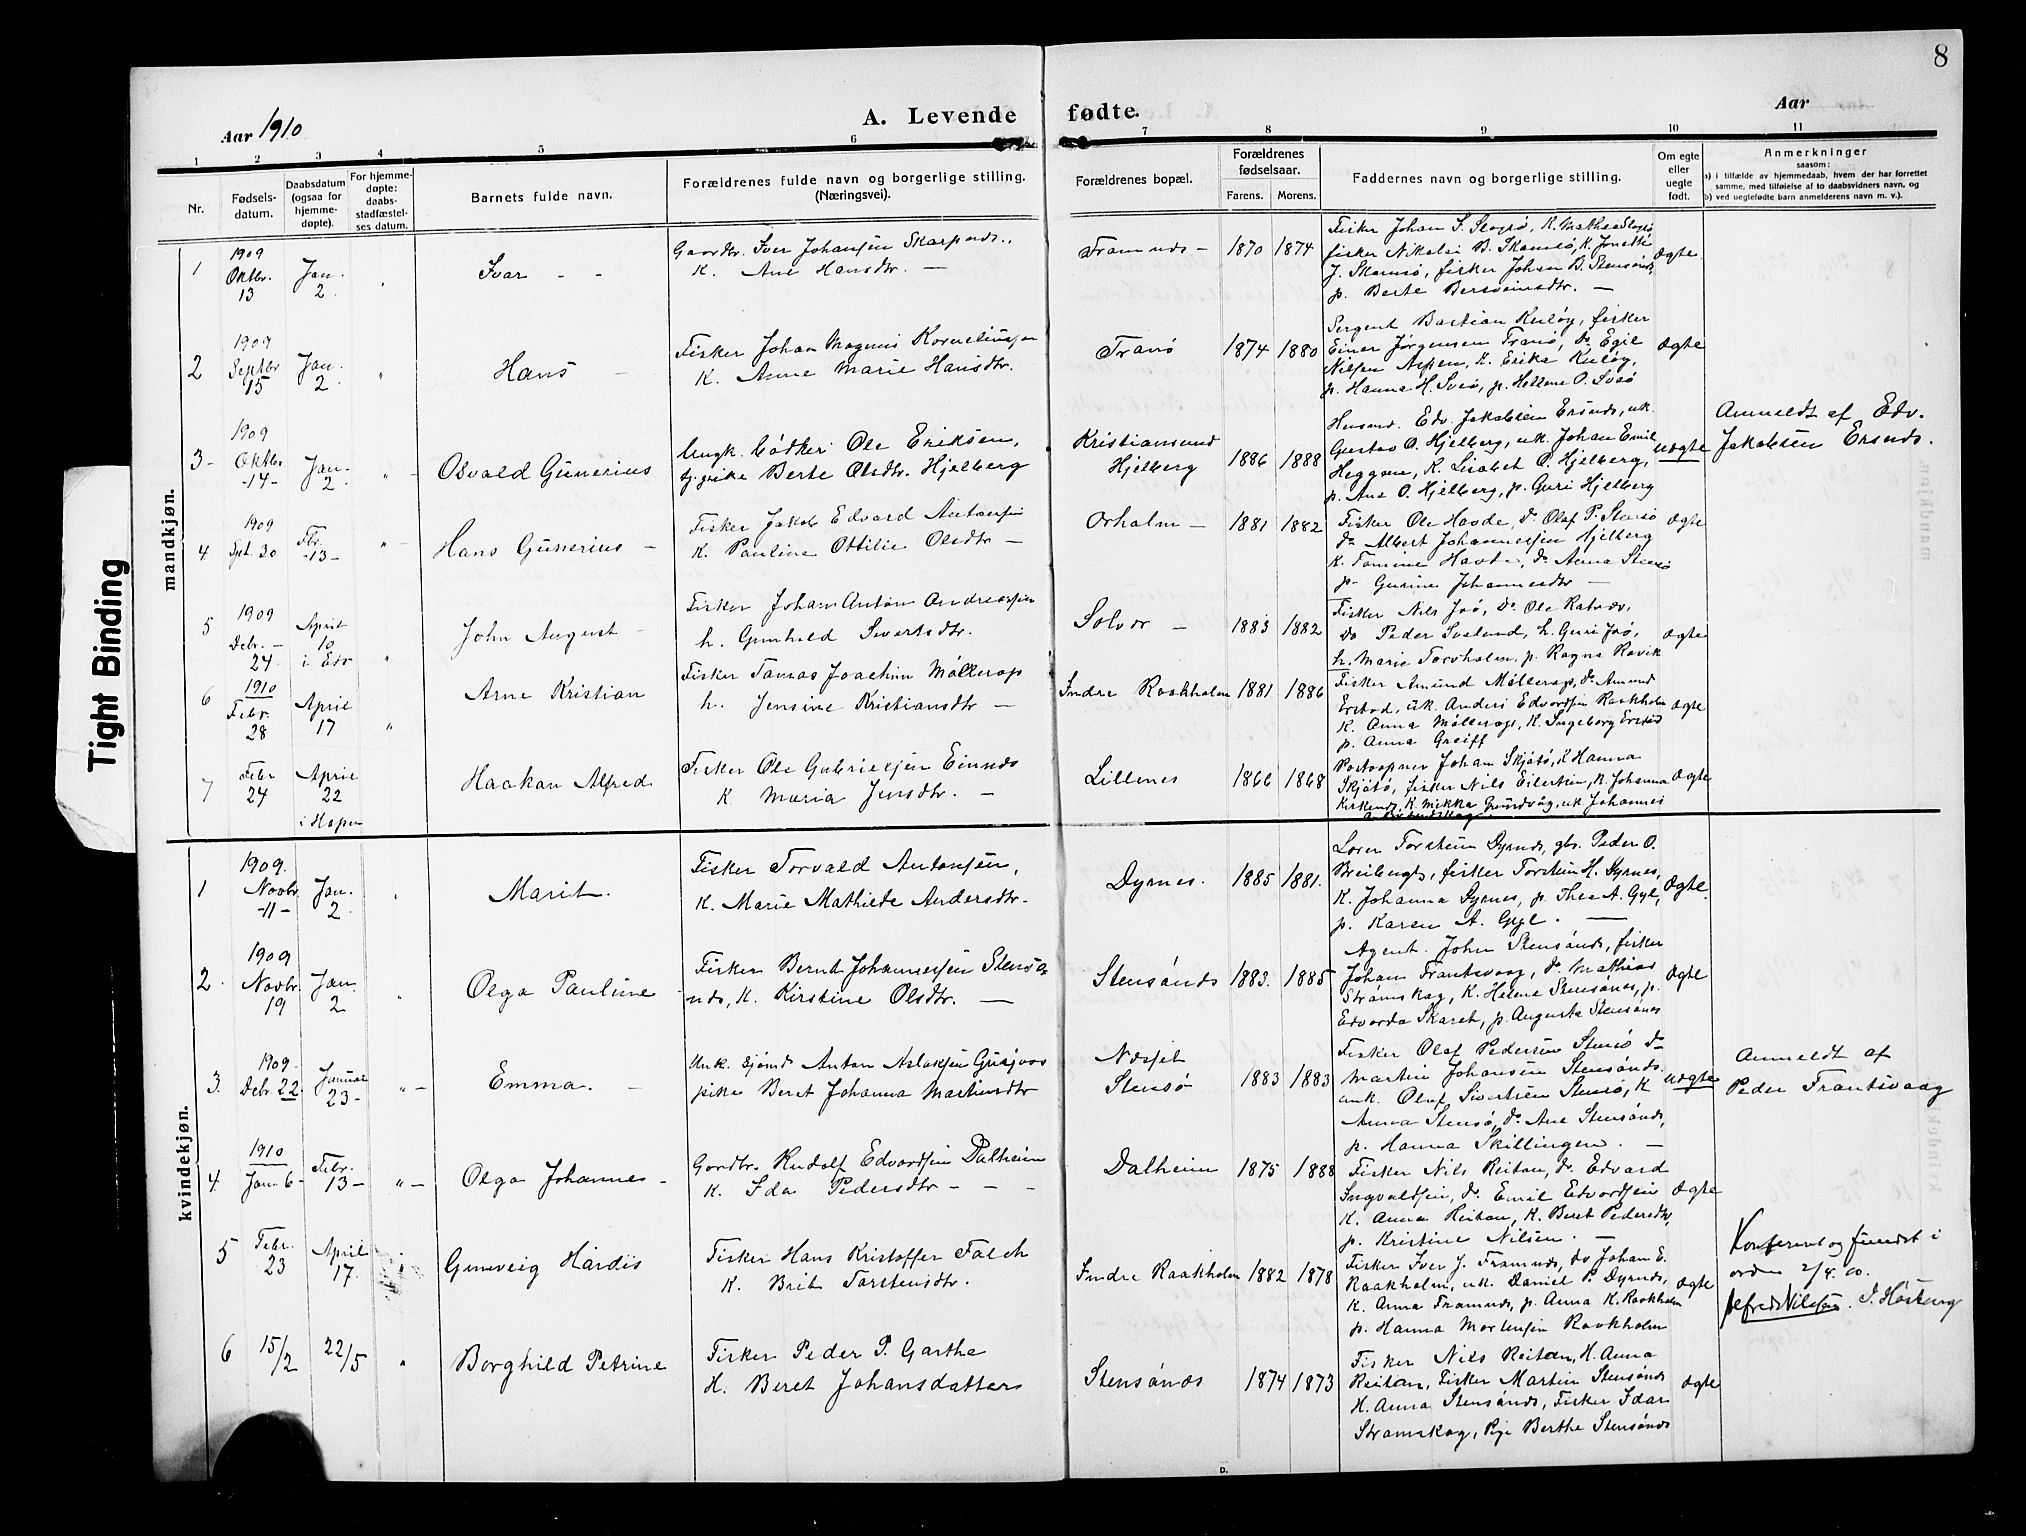 8
Aar 1910
A. Levende fødte.
Aar
1 2 3 4 5 6 7 8 9 10 11
Nr.
Fødsels-
datum.
Daabsdatum
(ogsaa for
hjemme-
døpte).
For hjemme-
døpte:
daabs-
stadfæstel-
ses datum.
Barnets fulde navn.
Forældrenes fulde navn og borgerlige stilling.
(Næringsvei).
Forældrenes bopæl.
Forældrenes
fødselsaar.
Farens. Morens.
Faddernes navn og borgerlige stilling.
Om egte
eller
uegte
født.
Anmerkninger
saasom:
a) i tilfælde av hjemmedaab, hvem der har forrettet
samme, med tilføielse af to daabsvidners navn, og
b) ved uegtefødte barn anmelderens navn m. v.).
mandkjøn.
1
1909
Oktbr.
13
Jan.
2.
Ivar - -
Gaardbr. Iver Johansen Skarpnds..
K. Ane Hansdtr. —
Framnds -
1870 1874
Fisker Johan S.
fisker Nikolai B. Skamsø, K.
J. Skamsø, fisker Johan B. Stensønds
p. Berte —
Ægte
2
1909
Septbr
15
Jan.
2.
Hans -
Fisker Johan Magnus Korneliussen
K. Anne Marie Hansdtr.
Tranø
1874 1880
Sergent Bastian Kuløy, fisker
Einer Jørgensen Tranø, do Egil
Nilsen Aspen, K. Erika Kuløy,
p. Hanna H. Svesø, p.
Ægte
3-
1909
Oktbr
-14-
Jan.
2
Osvald Gunerius
Ungk. Bødker Ole Eriksen,
pike Berte Olsdtr. Hjelberg
Kristiansund
Hjelberg
1886 1888
Husmd. Edv. Jakobsen Ersnds, uk.
Gustav O. Hjelberg, uk. Johan Emil
Heggem, K. Lisabet O. Hjelberg,
p. Ane O. Hjelberg, p. Guri Hjelberg
uægte
Anmeldt af Edv.
Jakobsen Ersnds.
4
1909
Spt. 30
Fbr.
-13-
Hans Gunerius -
Fisker Jakob Edvard Antonsen
K. Pauline Ottilie Olsdtr -
Orholm -
1881 1882
Fisker Ole Havde, do Olaf P. Stensø
do Albert Johannessen Hjelberg
K. Tomine, do Anna Stensø
p. Gurine Johannesdtr —
Ægte
5
1909
Debr. -
24.
April
10
i Edø
John August -
Fisker Johan Anton Andreassen
h. Gunhild Sivertsdtr.
Solvor -
1883 1882
Fisker Nils Joø, do Ole
do Peder, h. Guri Joø,
h. Marie Torvholm, p. Ragna Ravik
Ægte
6
1910
Febr.
28
April
17
Arne Kristian
Fisker Tomas Joachim Møllerop
h. Jensine Kristiansdtr -
Indre Raakholm
1881 1886
Fisker Amund Møllerop, do Amund
Erstad, uk. Anders Edvardsen Raakholm
K. Anna Møllerop, K. Ingeborg Erstad
p. Anna Greiff
Ægte
7
Febr
24
April
22
i Hopen
Haakan Alfred
Fisker Ole Gabrielsen
K. Maria Jensdtr. -
Lillenes
1866 1868
Postaapner Johan Skjøtø, K Hanna
Skjøtø, fisker Nils Eilertsen, K. Johanna
Kirkends, K. Mikka Grundvåg, uk. Johannes
Ægte
kvindekjøn.
1
1909.
Novbr
-11-
Jan.
2
Marit.
Fisker Torvald Antonsen,
K. Marie Mathilde Andersdtr.
Dyrnes.
1885 1881.
Torstein Dyrnds, gbr. Peder O.
fisker Torstein H. Dyrnes,
K. Johanna Dyrnes, p. Thea A. Gyl,
p. Karen A. Gyl. —
Ægte.
2.
1909
Novbr.
19
Jan.
2
Olga Pauline
Fisker Bernt Johannessen Stensø-
nds, K. Kirstine Olsdtr. —
Stensønds
1883. 1885
Agent. John Stensønds, fisker
Johan Frantsvaag, do Mathias
Strømskag, K. Helene Stensønes, p.
Edvarda Skaret, p. Augusta Stensønes
Ægte
3.
1909.
Debr 22.
Januar
23-
Emma. -
Unk. Sjømd Anton Aslaksen
pike Beret Johanna Martinsdtr
Stensø
1883 1883
Fisker Olaf Pedersen Stensø do
Martin Johansen Stensønds.
unk. Olaf Sivertsen Stensø, K
Anna Stensø, do Ane Stensønds,
p. Hanna Skillingen. -
uægte
Anmeldt af
Peder Frantsvaag
4.
1910
Jan 6-
Febr.
13-
Olga Johannes -
Gardbr. Rudolf Edvardsen Dalheim
K. Ida Pedersdtr - - -
Dalheim
1875 1888
Fisker Nils Reitan, do Edvard
Ingvaldsen, do Emil Edvardsen
K. Anna Reitan, K. Beret Pedersdtr,
p. Kristine Nilsen. -
Ægte
5
Febr.
23
April
17.
Gunveig Hårdis
Fisker Hans Kristoffer Falch
K. Brit Torstensdtr.
Indre Raakholm
1882 1878
Fisker Iver J. Framnds, do Johan E.
Raakholm, uk. Daniel P. Dyrnds,
K. Anna Framnds, p. Anna K. Raakholm
p. Hanna Mortensen Raakholm
Ægte
Konfereret og fundet i
orden 2/4 10.
Alfred Nilsen. J. Høsteng
6
15/2
22/5
Borghild Petrine
Fisker Peder P. Garthe
H. Beret Johansdatter
Stensønds
1874 1873
Fisker Nils Reitan, H. Anna
Reitan, Fisker Martin Stensønds
H. Anna Stensønds, Fisker Idar
Strømskag, Pige Berthe Stensønds
Ægte
D.
Tight Binding